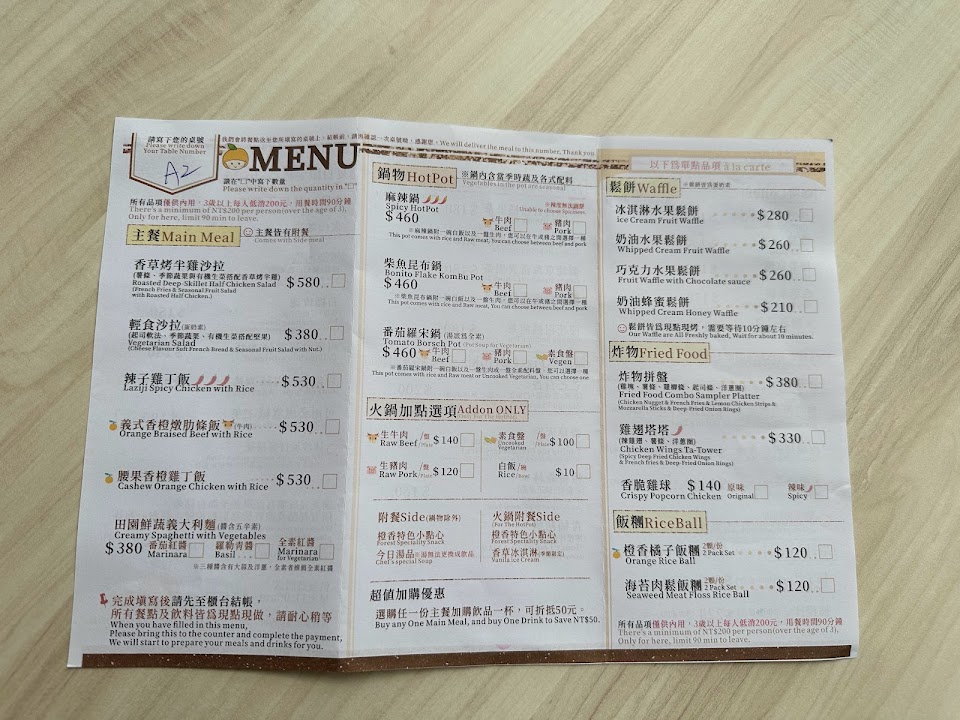 請寫下您的桌號
Please write down
Your Table Number
A2
我們會將餐點送至您所填寫的桌號上，結帳前，請再確認一次桌號唷，感謝您。We will deliver the meal to this number, Thank you
MENU
請在"□"中寫下數量
Please write down the quantity in "□"
所有品項僅供內用，3歲以上每人低消200元，用餐時間90分鐘
There's a minimum of NT$200 per person(over the age of 3),
Only for here, limit 90 min to leave.
主餐Main Meal 主餐皆有附餐
Comes with Side meal
香草烤半雞沙拉
(薯條、季節蔬果與有機生菜搭配香草烤半雞)
Roasted Deep-Skillet Half Chicken Salad $580
(French Fries & Seasonal Fruit Salad
with Roasted Half Chicken.)
輕食沙拉(蛋奶素)
(起司軟法、季節蔬果、有機生菜搭配堅果) $380
Vegetarian Salad
(Cheese Flavour Soft French Bread & Seasonal Fruit Salad with Nut.)
辣子雞丁飯 $530
Laziji Spicy Chicken with Rice
義式香橙燉肋條飯(牛肉) $530
Orange Braised Beef with Rice
腰果香橙雞丁飯 $530
Cashew Orange Chicken with Rice
田園鮮蔬義大利麵(醬含五辛素)
Creamy Spaghetti with Vegetables
$380 番茄紅醬 羅勒青醬 全素紅醬
Marinara Basil Marinara
for Vegetarian
※三種醬含有大蒜及洋蔥，全素者推薦全素紅醬
完成填寫後請先至櫃台結帳，
所有餐點及飲料皆為現點現做，請耐心稍等
When you have filled in this menu,
Please bring this to the counter and complete the payment,
We will start to prepare your meals and drinks for you.
鍋物HotPot ※鍋內含當季時蔬及各式配料
Vegetables in the pot are seasonal
麻辣鍋 ※辣度無法調整
Spicy HotPot Unable to choose Spiciness
$460 牛肉 豬肉
Beef Pork
※麻辣鍋附一碗白飯以及一盤生肉，您可以在牛或豬之間選擇一種
This pot comes with rice and Raw meat, You can choose between beef and pork
柴魚昆布鍋
Bonito Flake KomBu Pot
$460 牛肉 豬肉
Beef Pork
※柴魚昆布鍋附一碗白飯以及一盤生肉，您可以在牛或豬之間選擇一種
This pot comes with rice and Raw meat, You can choose between beef and pork
番茄羅宋鍋 (湯底為全素)
Tomato Borsch Pot (Pot Soup for Vegetarian)
$460 牛肉 豬肉 素食盤
Beef Pork Vegen
※番茄羅宋鍋附一碗白飯以及一盤生肉或一盤全素配料盤，您可以選擇一種
This pot comes with rice and Raw meat or Uncooked Vegetarian, You can choose one
火鍋加點選項Addon ONLY
Only For The HotPot
生牛肉 /盤 $140 素食盤 /盤 $100
Raw Beef /Plate Uncooked /Plate
Vegetarian
生豬肉 /盤 $120 白飯/碗 $10
Raw Pork /Plate Rice/Bowl
附餐Side(鍋物除外) 火鍋附餐Side
(For The HotPot)
橙香特色小點心 橙香特色小點心
Forest Speciality Snack Forest Speciality Snack
今日湯品※湯無法更換成飲品 香草冰淇淋(季節限定)
Chef's special Soup Vanilla Ice Cream
超值加購優惠
選購任一份主餐加購飲品一杯，可折抵50元。
Buy any One Main Meal, and buy One Drink to Save NT$50.
以下為單點品項 à la carte
鬆餅Waffle ※鬆餅皆為蛋奶素
冰淇淋水果鬆餅 $280
ice Cream Fruit Waffle
奶油水果鬆餅 $260
Whipped Cream Fruit Waffle
巧克力水果鬆餅 $260
Fruit Waffle with Chocolate sauce
奶油蜂蜜鬆餅 $210
Whipped Cream Honey Waffle
鬆餅皆為現點現烤，需要等待10分鐘左右
Our Waffle are All Freshly baked, Wait for about 10 minutes.
炸物Fried Food
炸物拼盤 $380
(雞塊、薯條、雞柳條、起司條、洋蔥圈)
Fried Food Combo Sampler Platter
(Chicken Nugget & French Fries & Lemon Chicken Strips &
Mozzarella Sticks & Deep-Fried Onion Rings)
雞翅塔塔 $330
(辣雞翅、薯條、洋蔥圈)
Chicken Wings Ta-Tower
(Spicy Deep Fried Chicken Wings
& French fries & Deep-Fried Onion Rings)
香脆雞球 $140 原味 辣味
Crispy Popcorn Chicken Original Spicy
飯糰RiceBall
橙香橘子飯糰 2顆/份 $120
Orange Rice Ball 2 Pack Set
海苔肉鬆飯糰 2顆/份 $120
Seaweed Meat Floss Rice Ball 2 Pack Set
所有品項僅供內用，3歲以上每人低消200元，用餐時間90分鐘
There's a minimum of NT$200 per person(over the age of 3),
Only for here, limit 90 min to leave.